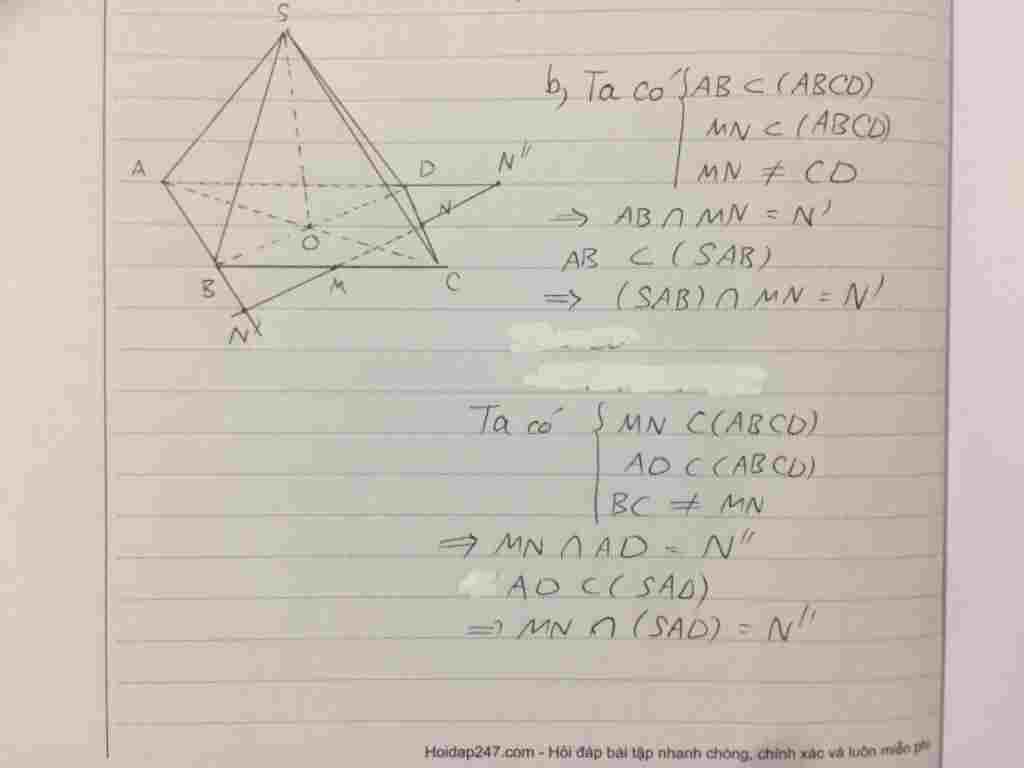 S
b, Ta có { AB ⊂ (ABCD)
MN ⊂ (ABCD)
MN ≠ CD
A
D
N''
N
⇒ AB ∩ MN = N'
O
AB ⊂ (SAB)
B
M
C
⇒ (SAB) ∩ MN = N'
N'
Ta có { MN ⊂ (ABCD)
AD ⊂ (ABCD)
BC ≠ MN
⇒ MN ∩ AD = N''
AD ⊂ (SAD)
⇒ MN ∩ (SAD) = N''
Hoidap247.com - Hỏi đáp bài tập nhanh chóng, chính xác và luôn miễn phí